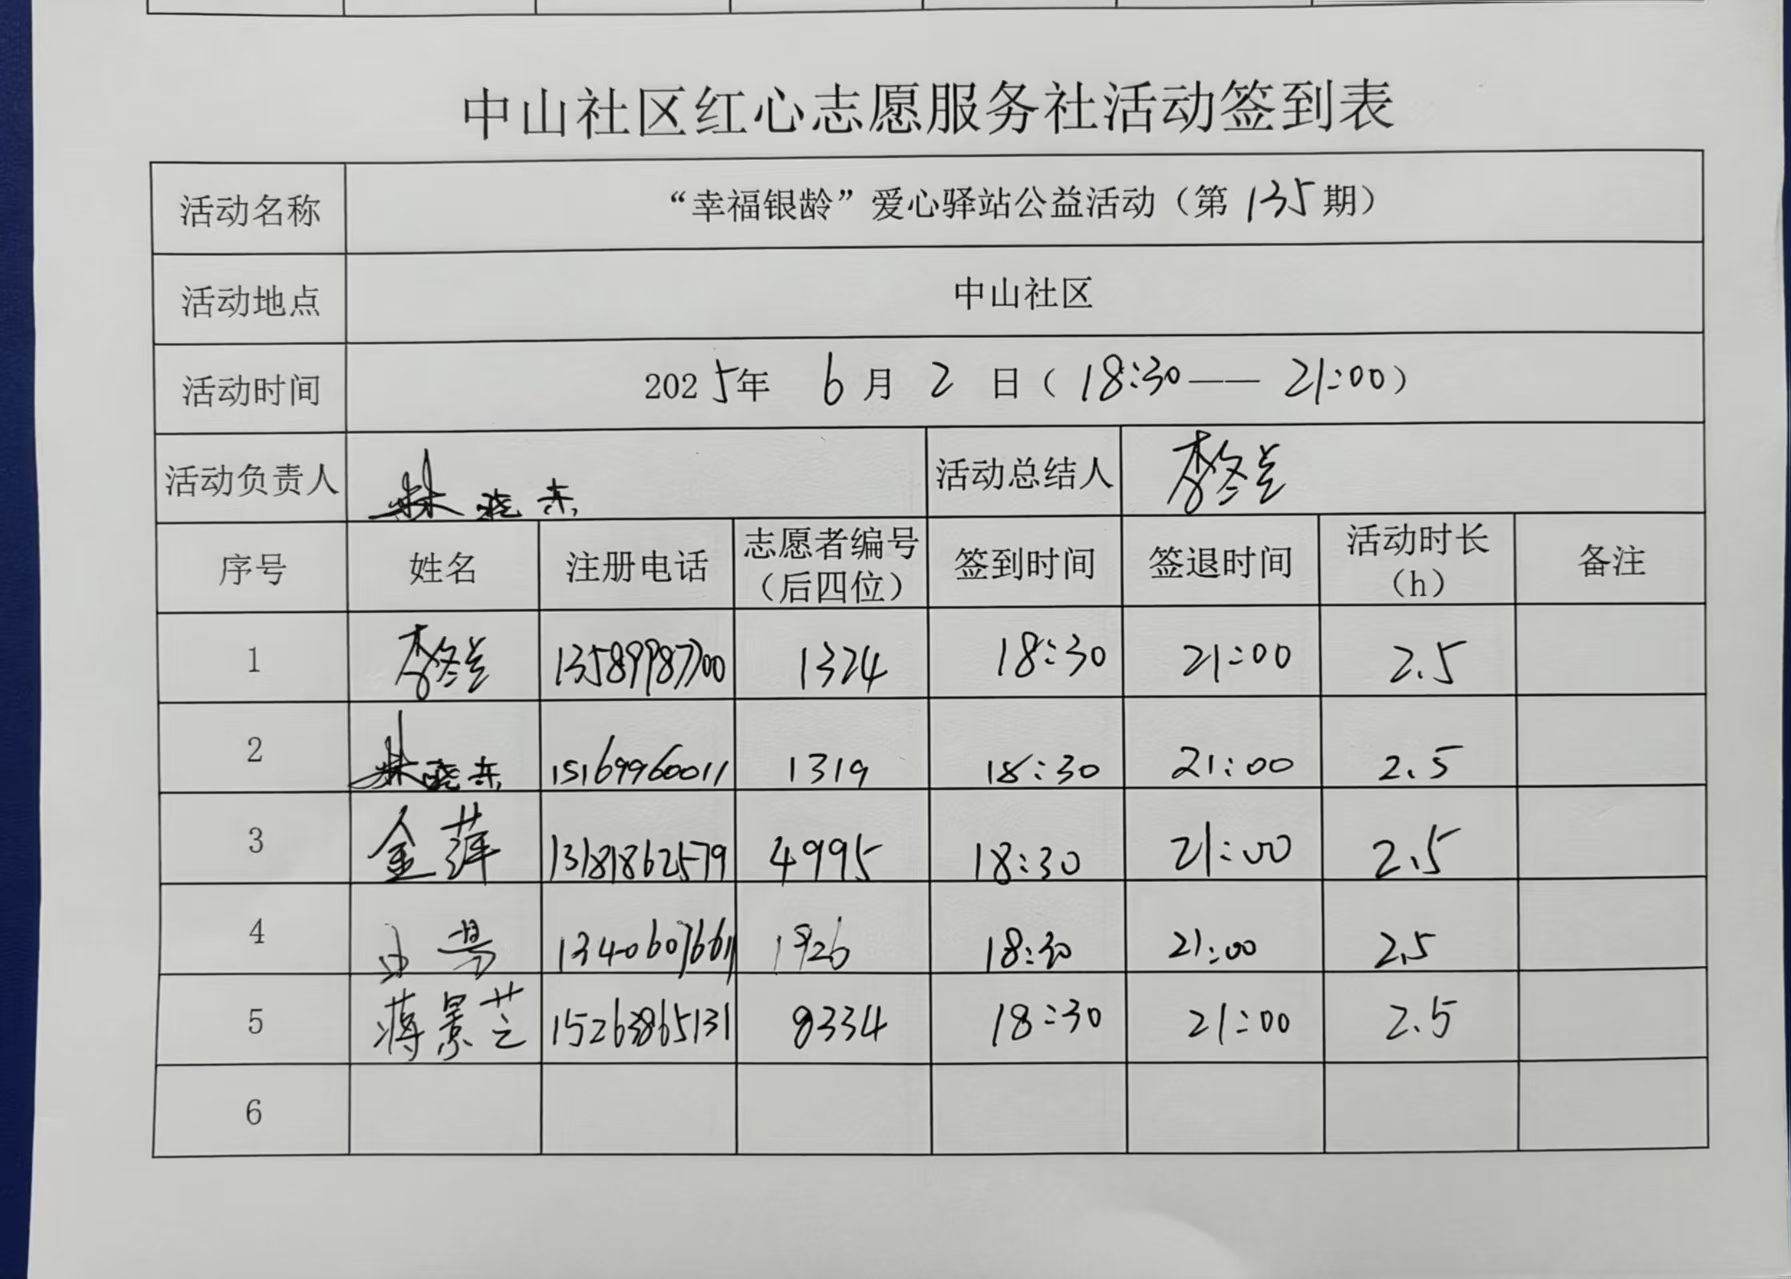 中山社区红心志愿服务社活动签到表
活动名称 “幸福银龄”爱心驿站公益活动（第 135 期）
活动地点 中山社区
活动时间 2025年 6 月 2 日（18:30—— 21:00）
活动负责人 林晓东 活动总结人 李冬兰
序号 姓名 注册电话 志愿者编号（后四位） 签到时间 签退时间 活动时长（h） 备注
1 李冬兰 13589987700 1324 18:30 21:00 2.5
2 林晓东 15169960011 1319 18:30 21:00 2.5
3 金萍 13181862579 4995 18:30 21:00 2.5
4 1926 18:30 21:00 2.5
5 蒋景芝 15263865131 8334 18:30 21:00 2.5
6